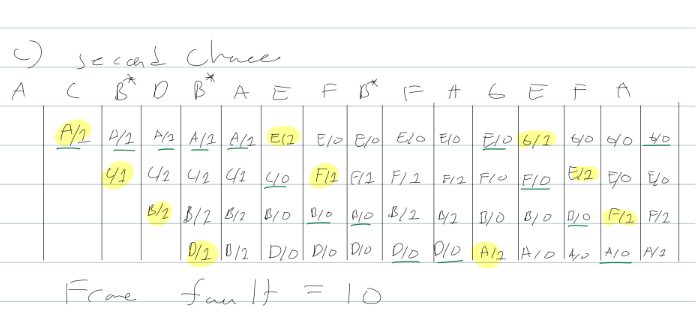 c) second chance
A C B* D B* A E F B* F A G E F A
A/1 A/1 A/1 A/1 A/1 E/1 E/0 E/0 E/0 E/0 E/0 G/1 G/0 G/0 G/0
C/1 C/1 C/1 C/1 C/0 F/1 F/1 F/1 F/1 F/0 F/0 E/1 E/0 E/0
B/1 B/1 B/1 B/0 B/0 B/0 B/1 B/1 B/0 B/0 B/0 F/1 F/1
D/1 D/1 D/0 D/0 D/0 D/0 D/0 A/1 A/0 A/0 A/0 A/1
Frame fault = 10